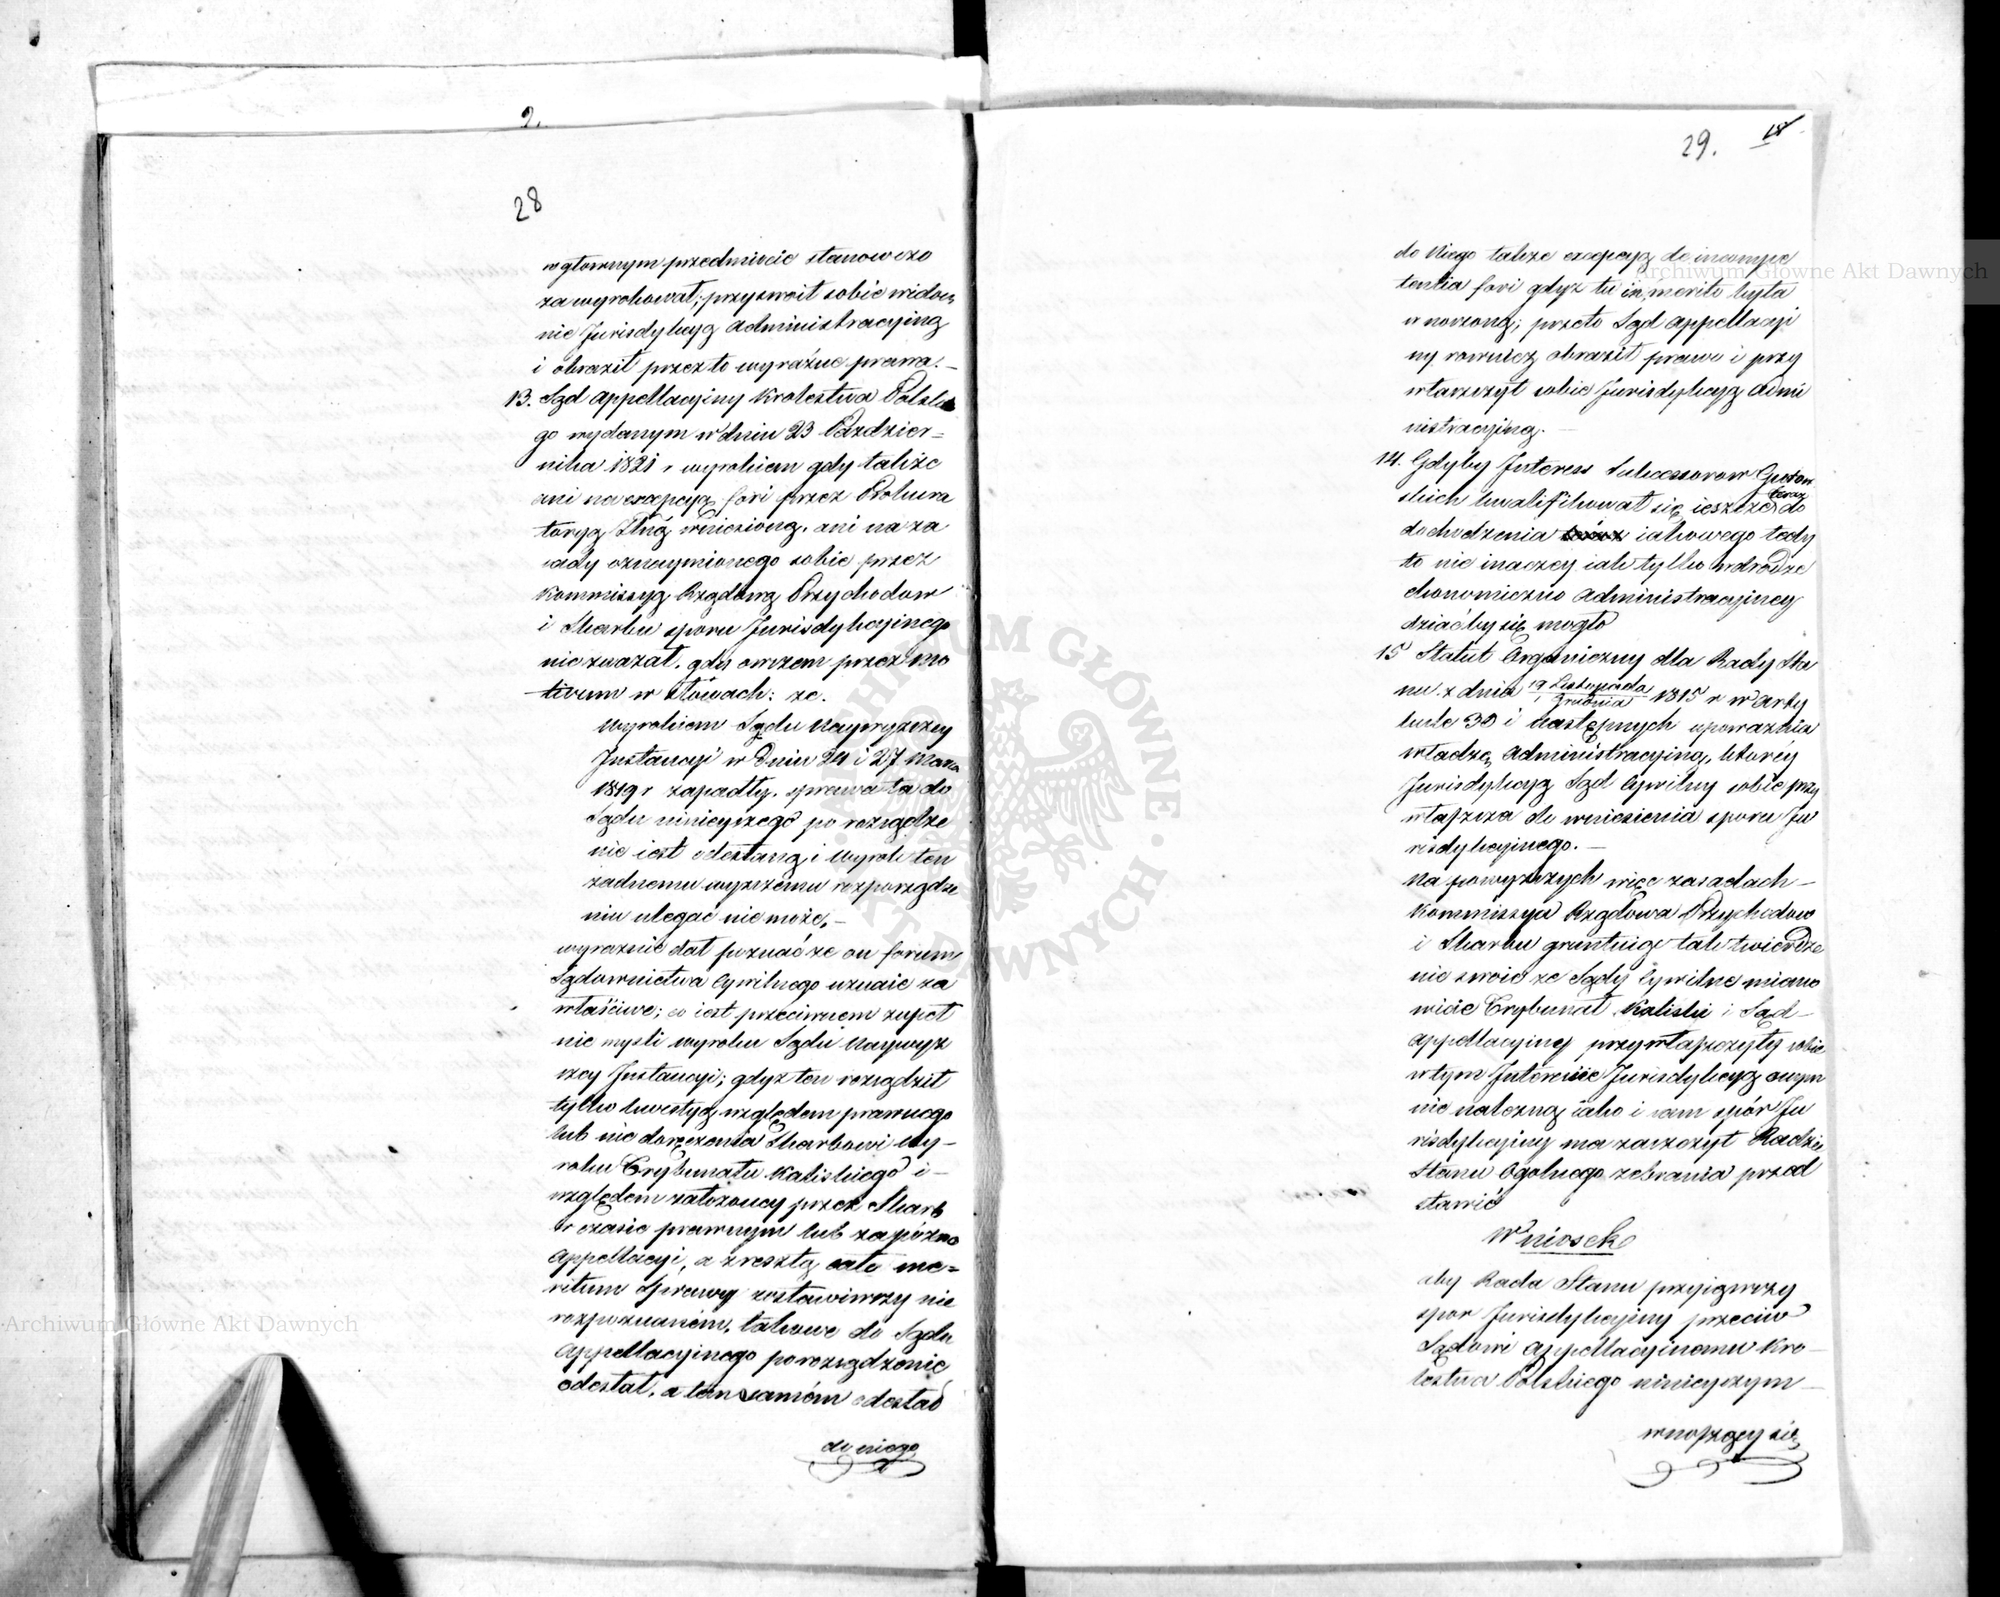 9.
28
w głownym przedmiocie stanowczo
zawyrokował; przyswoił sobie widocz
nie Jurisdykcyą administracyiną
i obraził przez to wyraźne prawa.—
13. Sąd appellacyiny Krolestwa Polskie
go wydanym w dniu 23 Paździer=
nika 1821 r wyrokiem gdy także
ani na excepcyą fori przez Prokura
toryą wniesioną, ani na za
sady oznaymionego sobie przez
Kommissyą Rządową Przychodow
i Skarbu sporu Jurisdykcyinego
nie zważał, gdy owszem przez mo
tivum w słowach: że.
Wyrokiem Sądu Naywyższey
Instancyi w Dniu 24 i 27 Marca
1819 r zapadłym, sprawa ta do
Sądu ninieyszego po rozsądze
nie iest odesłaną i Wyrok ten
żadnemu wyższemu rozporządze
niu ulegać nie może,—
wyraźnie dał poznać że on forum
Sądownictwa Cywilnego uznaie za
właściwe; co iest przeciwnem zupeł
nie myśli wyroku Sądu Naywyż
szey Instancyi; gdyż ten rozsądził
tylko kwestyą względem prawnego
lub nie doręczenia Skarbowi wy-
roku Trybunału Kaliskiego i—
względem założoney przez Skarb
w czasie prawnym lub zapóźno
Appellacyi, a zresztą całe me=
ritum Sprawy zostawiwszy nie
rozpoznanem, takowe do Sądu
Appellacyinego po rozsądzenie
odesłał, a tem samém odesłał
do niego
29.
do Niego także excepcyą de incompe
tentia fori gdyż tu in merito była
wnoszoną; przeto Sąd appellacyi
ny rownież obraził prawo i przy
właszczył sobie Jurisdykcyą Admi
nistracyiną.—
14. Gdyby Interess Sukcessorow Gutow
skich kwalifikował się ieszcze teraz do
dochodzenia iakowego tedy
to nie inaczey iak tylko w drodze
ekonomiczno administracyiney
dziać by się mogło
15 Statut Organiczny dla Rady Sta
nu z dnia 19 Listopada / 1 Grudnia 1815 r w arty
kule 30 i następnych upoważnia
władzę administracyiną, ktorey
Jurisdykcyą Sąd Cywilny sobie przy
właszcza do wniesienia sporu Ju
risdykcyinego.—
Na powyższych więc zasadach—
Kommissya Rządowa Przychodow
i Skarbu gruntuiąc tak twierdze
nie swoie że Sądy Cywilne miano
wicie Trybunał Kaliski i Sąd—
appellacyiny przywłaszczyły sobie
w tym Interessie Jurisdykcyą owym
nie należną, iako i sam spór Ju
risdykcyiny ma zaszczyt Radzie
Stanu Ogolnego zebrania przed
stawić
Wniosek
aby Rada Stanu przyiąwszy
spor Jurisdykcyiny przeciw
Sądowi appellacyinemu Kro—
lestwa Polskiego ninieyszym—
wnoszący się
Archiwum Główne Akt Dawnych
Archiwum Główne Akt Dawnych
ARCHIWUM GŁÓWNE AKT DAWNYCH